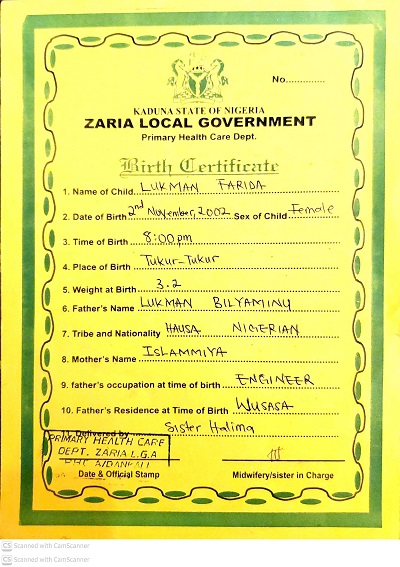 No..............
KADUNA STATE OF NIGERIA
ZARIA LOCAL GOVERNMENT
Primary Health Care Dept.
Birth Certificate
1. Name of Child LUKMAN FARIDA
2. Date of Birth 2nd November, 2002 Sex of Child Female
3. Time of Birth 8:00pm
4. Place of Birth Tukur-Tukur
5. Weight at Birth 3.2
6. Father's Name LUKMAN BILYAMINU
7. Tribe and Nationality HAUSA NIGERIAN
8. Mother's Name ISLAMMIYA
9. father's occupation at time of birth ENGINEER
10. Father's Residence at Time of Birth WUSASA
11. Delivered by Sister Halima
PRIMARY HEALTH CARE
DEPT. ZARIA L.G.A
PHC
Date & Official Stamp Midwifery/sister in Charge
CS Scanned with CamScanner
CS Scanned with CamScanner